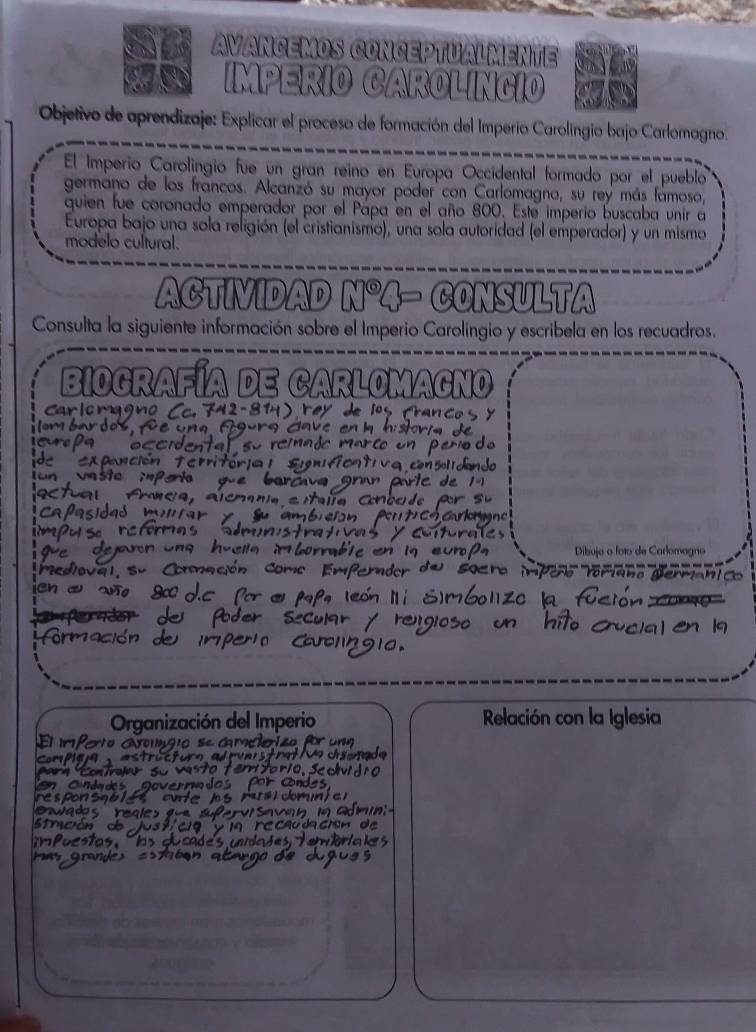 AVANCEMOS CONCEPTUALMENTE
IMPERIO CAROLINGIO
Objetivo de aprendizaje: Explicar el proceso de formación del Imperio Carolingio bajo Carlomagno.
El Imperio Carolingio fue un gran reino en Europa Occidental formado por el pueblo
germano de los francos. Alcanzó su mayor poder con Carlomagno, su rey más famoso,
quien fue coronado emperador por el Papa en el año 800. Este imperio buscaba unir a
Europa bajo una sola religión (el cristianismo), una sola autoridad (el emperador) y un mismo
modelo cultural.
ACTIVIDAD N°4- CONSULTA
Consulta la siguiente información sobre el Imperio Carolingio y escribela en los recuadros.
BIOGRAFÍA DE CARLOMAGNO
carlomagno (c. 742-814), rey de los francos y
lombardos, fue una figura clave en la historia de
europa occidental, su reinado marco un periodo
de expanción territorial significativa, consolidando
un vasto imperio que barcava gran parte de la
actual francia, alemania, e italia conocido por su
capasidad militar y su ambicion politica, carlomagno
impulso reformas administrativas y culturales
que dejaron una huella imborrable en la europa
Dibujo o foto de Carlomagno
medioval. su Coronación como Emperador del sacro imperio romano germanico
en el año 800 d.c por el papa león III simbolizo la fución
del poder secular y religioso un hito crucial en la
formación del imperio carolingio.
Organización del Imperio
El imperio carolingio se caracterizo por una
compleja estructura administrativa diseñada
para controlar su vasto territorio. Se dividio
en condados governados por condes,
responsables ante los missi dominici
enviados reales que supervisavan la admini-
stración de justicia y la recaudación de
impuestos. los ducados, unidades territoriales
mas grandes estaban a cargo de duques
Relación con la Iglesia